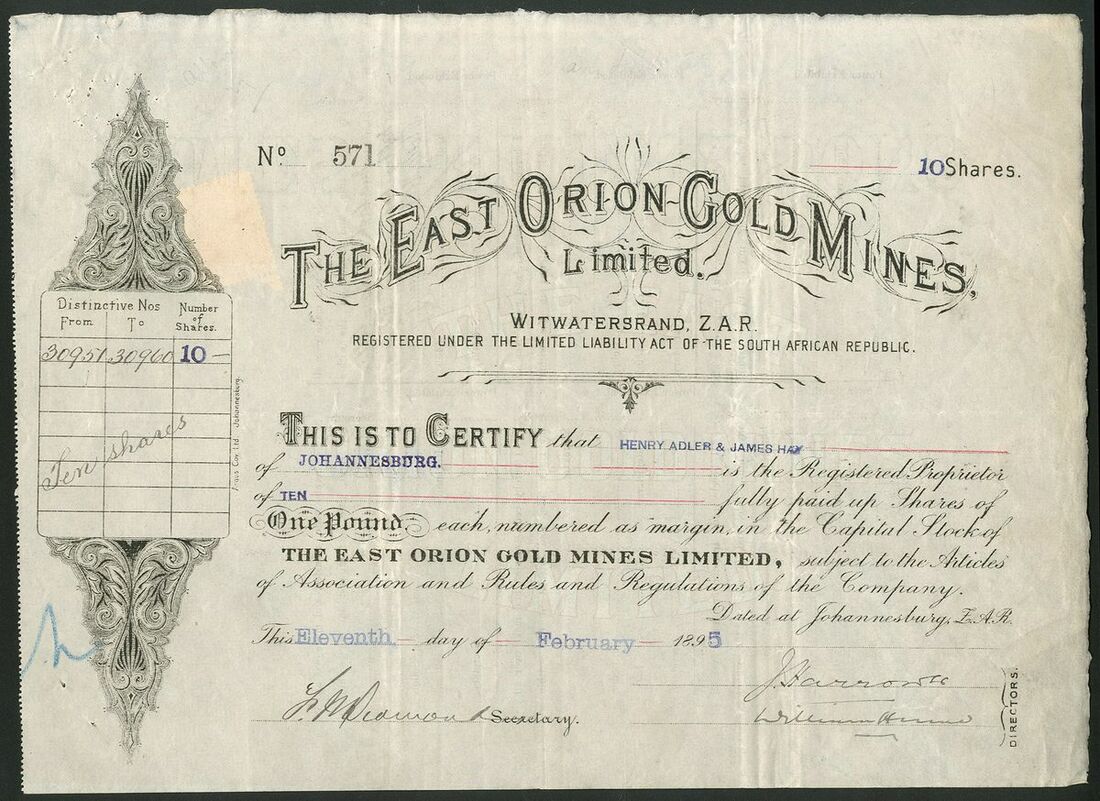 No 571 10 Shares.
THE EAST ORION GOLD MINES,
Limited.
WITWATERSRAND, Z.A.R.
REGISTERED UNDER THE LIMITED LIABILITY ACT OF THE SOUTH AFRICAN REPUBLIC.
Distinctive Nos Number of Shares.
From To
30951 30960 10 —
Ten shares
Argus Coy, Ltd. Johannesburg.
THIS IS TO CERTIFY that HENRY ADLER & JAMES HAY
of JOHANNESBURG. is the Registered Proprietor
of TEN fully paid up Shares of
One Pound each, numbered as margin, in the Capital Stock of
THE EAST ORION GOLD MINES LIMITED, subject to the Articles
of Association and Rules and Regulations of the Company.
Dated at Johannesburg, Z.A.R.
This Eleventh day of February 1895
Secretary.
DIRECTORS.